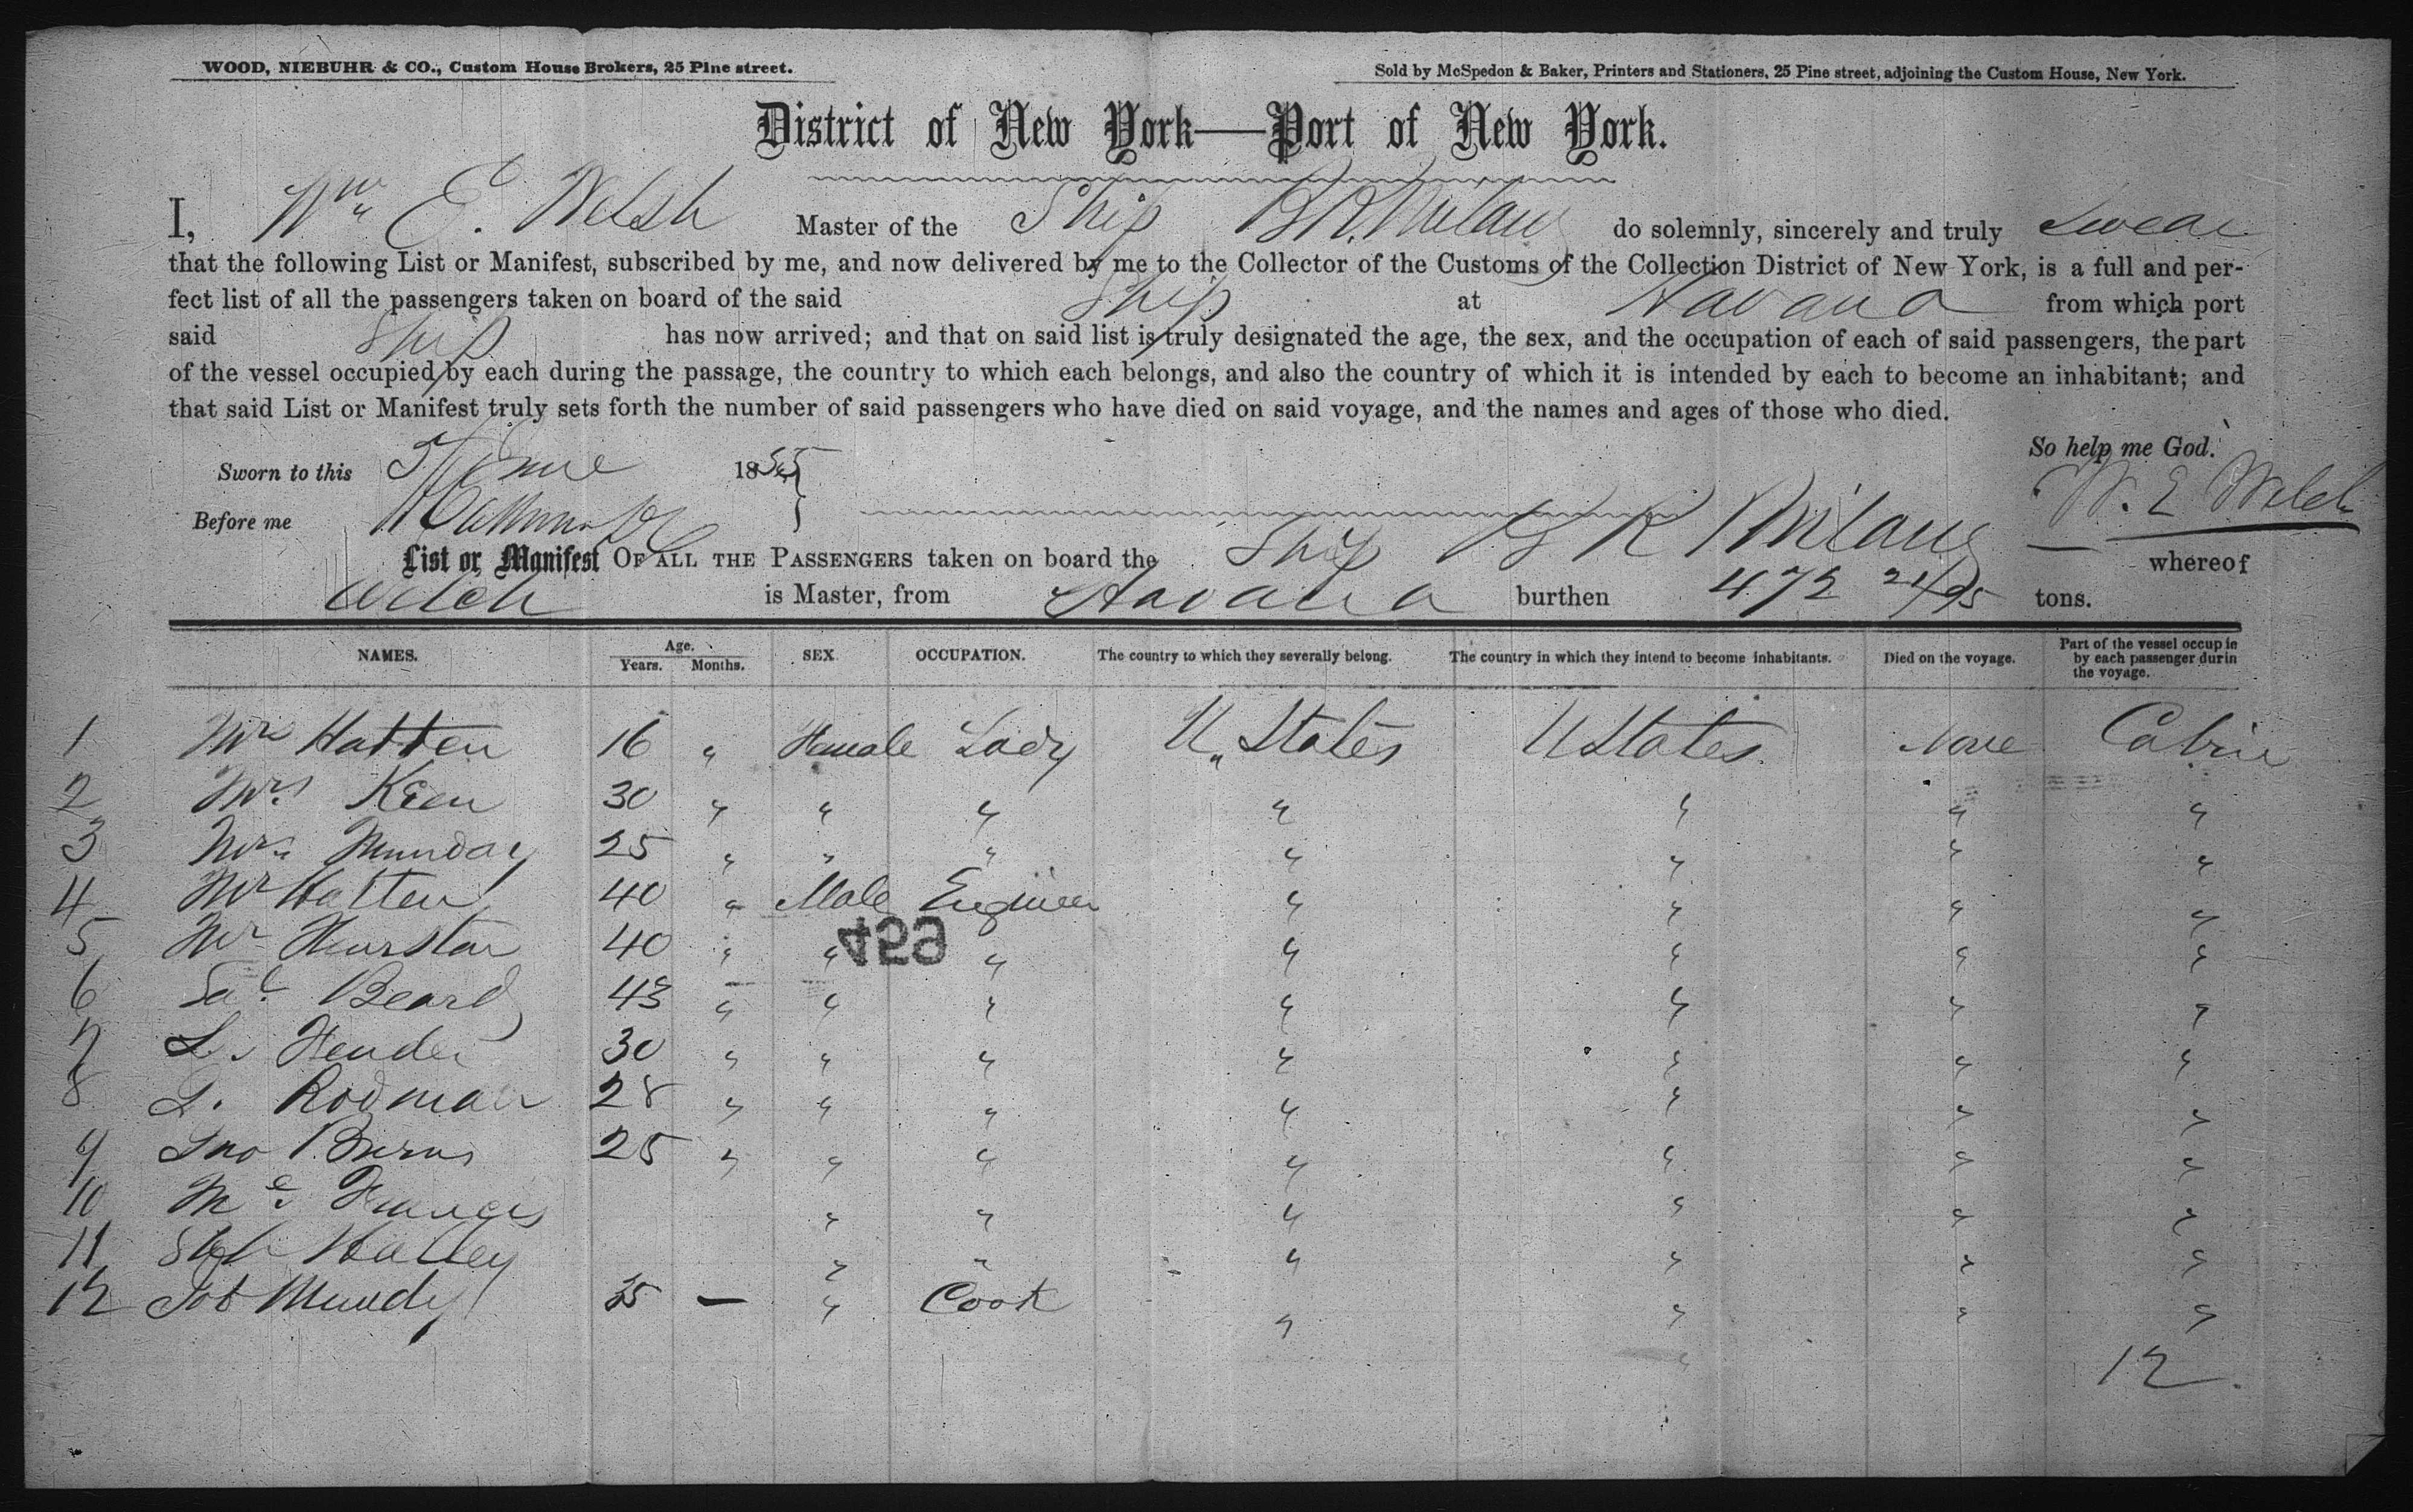 WOOD, NIEBUHR & CO., Custom House Brokers, 25 Pine street.
Sold by McSpedon & Baker, Printers and Stationers, 25 Pine street, adjoining the Custom House, New York.
District of New York—Port of New York.
I, Wm E. Welsh Master of the Ship B R Milam do solemnly, sincerely and truly swear
that the following List or Manifest, subscribed by me, and now delivered by me to the Collector of the Customs of the Collection District of New York, is a full and per-
fect list of all the passengers taken on board of the said Ship at Havana from which port
said Ship has now arrived; and that on said list is truly designated the age, the sex, and the occupation of each of said passengers, the part
of the vessel occupied by each during the passage, the country to which each belongs, and also the country of which it is intended by each to become an inhabitant; and
that said List or Manifest truly sets forth the number of said passengers who have died on said voyage, and the names and ages of those who died.
So help me God.
Sworn to this 5 June 1855
W. E Welch
Before me
List or Manifest OF ALL THE PASSENGERS taken on board the Ship B R Milam whereof
Welch is Master, from Havana burthen 472 21/95 tons.
NAMES. Age. Years. Months. SEX. OCCUPATION. The country to which they severally belong. The country in which they intend to become inhabitants. Died on the voyage. Part of the vessel occupie by each passenger durin the voyage.
1 Mrs Hatten 16 " Female Lady U. States U States None Cabin
2 Mrs Keen 30 " " " " " " "
3 Mrs Munday 25 " " " " " " "
4 Mr Hatten 40 " Male Engineer " " " "
5 Mr 40 " " " " " " "
459
6 Beard 43 " " " " " " "
7 L. 30 " " " " " " "
8 Rodman 28 " " " " " " "
9 Jno Burns 25 " " " " " " "
10 Mc Francis " " " " " "
11 " " " " " "
12 Job Mundy 35 — " Cook " " " "
12